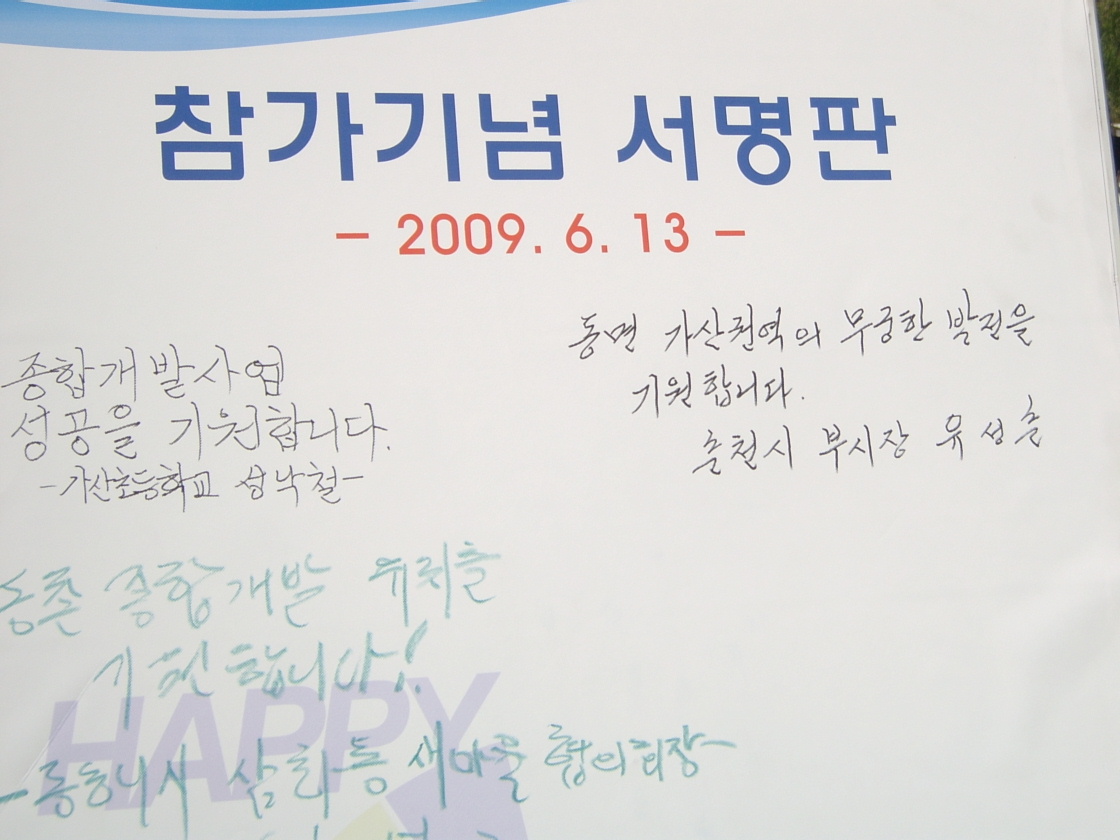 참가기념 서명판
- 2009. 6. 13 -
동면 가산권역의 무궁한 발전을
기원합니다.
춘천시 부시장 유성춘
종합개발사업
성공을 기원합니다.
-가산초등학교 상낙철-
농촌 종합개발
기원합니다!
삼화동 새마을 협의회장-
HAPPY